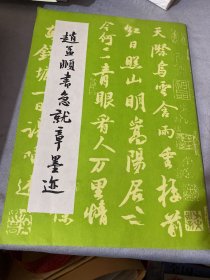 天際烏雲含雨重樓前
紅日照山明嵩陽居士
今何在青眼看人萬里情
趙孟頫書急就章墨迹